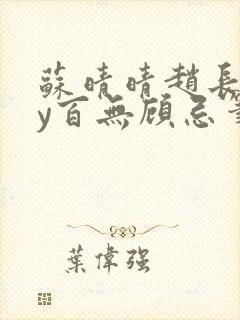 蘇晴晴趙長
y百無顧忌
葉偉强